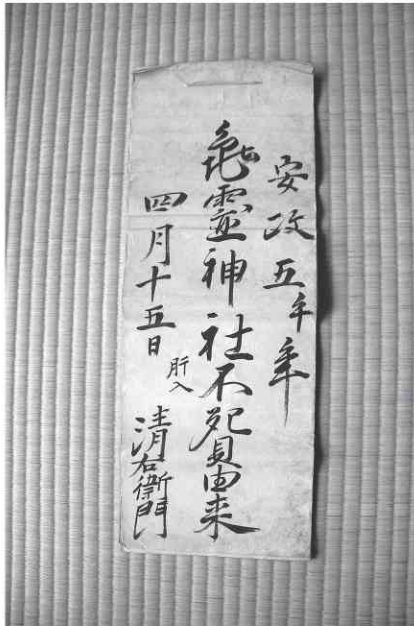 安政五午年
亀霊神社不死貝由来
四月十五日
肝入
清右衛門